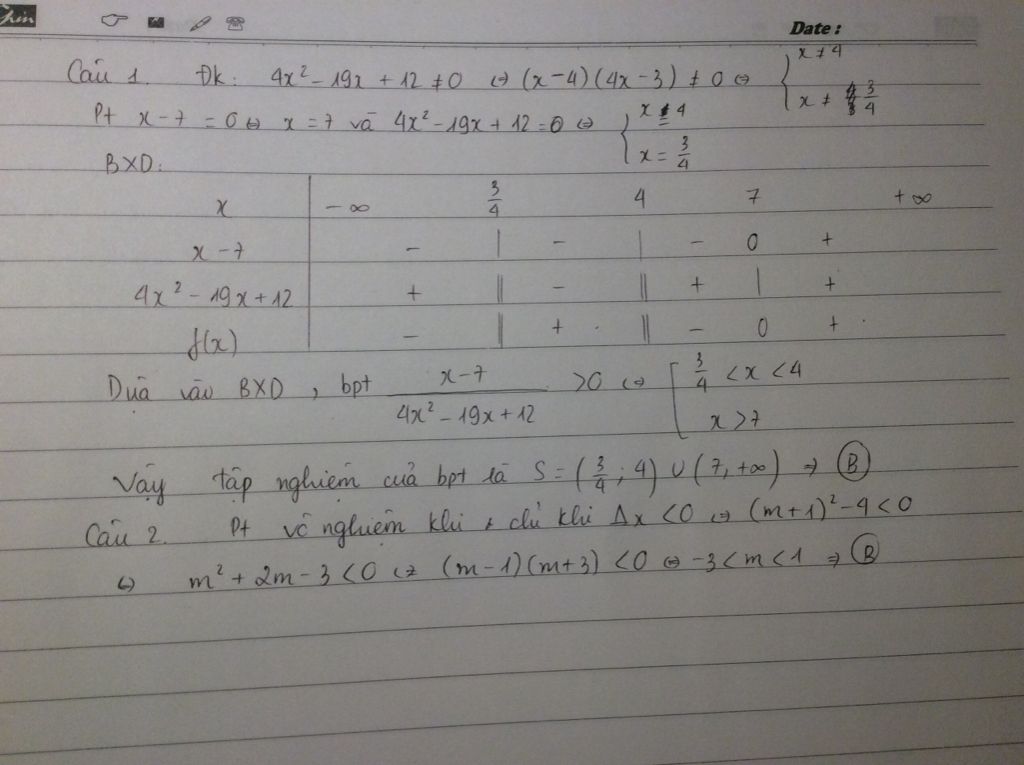 Date :
Câu 1. Đk: 4x² - 19x + 12 ≠ 0 ⇔ (x-4)(4x-3) ≠ 0 ⇔ { x ≠ 4
x ≠ 3/4
Pt x-7 = 0 ⇔ x = 7 và 4x² - 19x + 12 = 0 ⇔ { x = 4
x = 3/4
BXD:
x | -∞ 3/4 4 7 +∞
x-7 | - | - | - 0 +
4x² - 19x + 12 | + || - || + | +
f(x) | - || + || - 0 +
Dựa vào BXD, bpt (x-7)/(4x² - 19x + 12) > 0 ⇔ [ 3/4 < x < 4
x > 7
Vậy tập nghiệm của bpt là S = (3/4 ; 4) ∪ (7, +∞) ⇒ B
Câu 2. Pt vô nghiệm khi & chỉ khi Δx < 0 ⇔ (m+1)² - 4 < 0
⇔ m² + 2m - 3 < 0 ⇔ (m-1)(m+3) < 0 ⇔ -3 < m < 1 ⇒ B